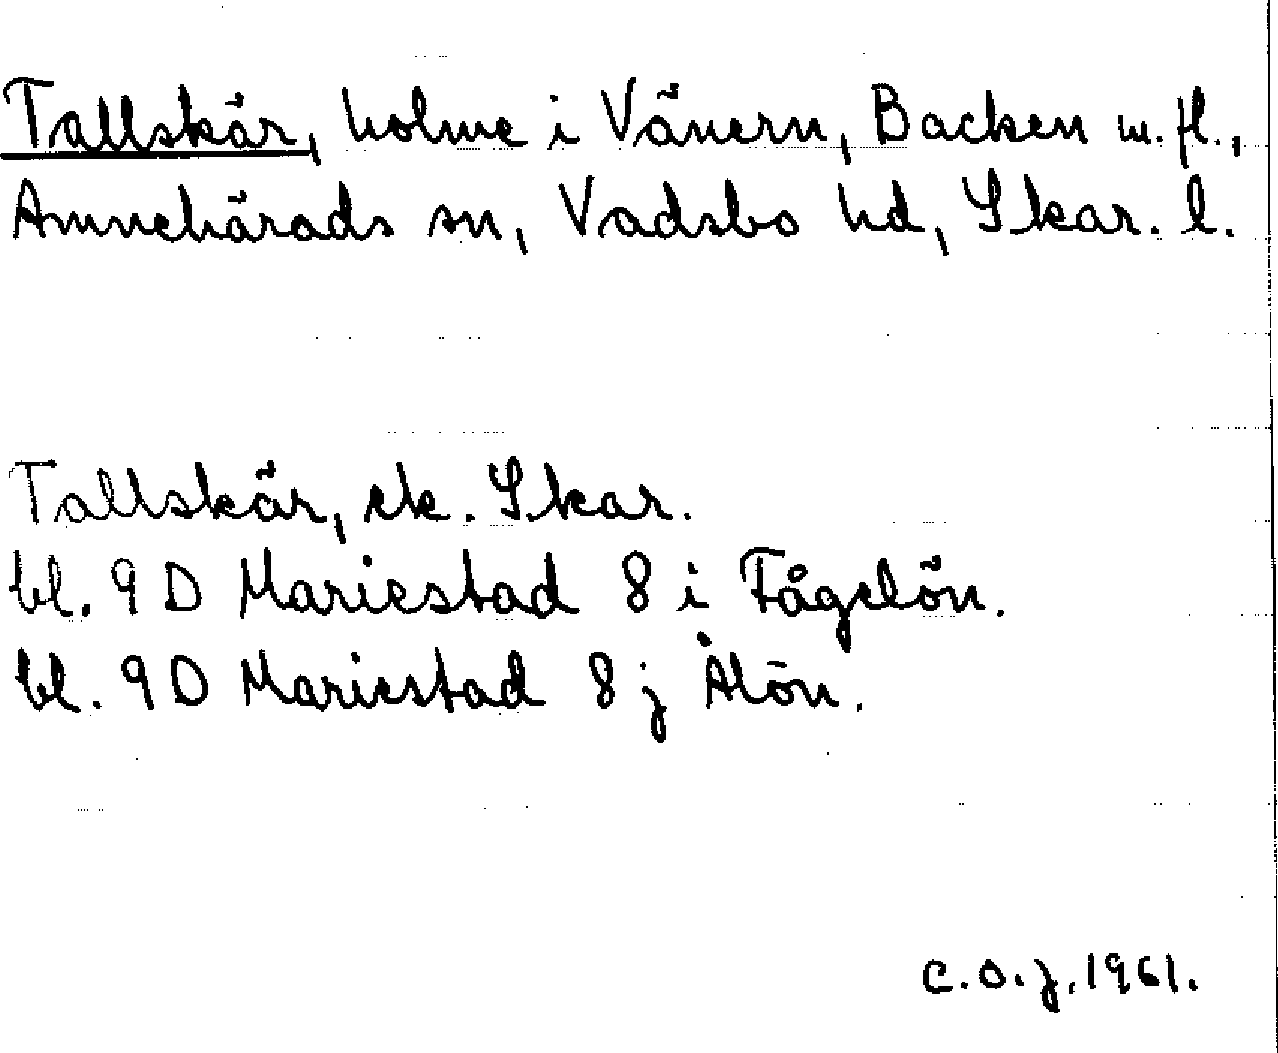 Tallskär, holme i Vänern, Backen m.fl.,
Amnehärads sn, Vadsbo hd, Skar. l.
Tallskär, ek. Skar.
bl. 9D Mariestad 8 i Fågelön.
bl. 9D Mariestad 8 j Ålön.
C.O.J. 1961.